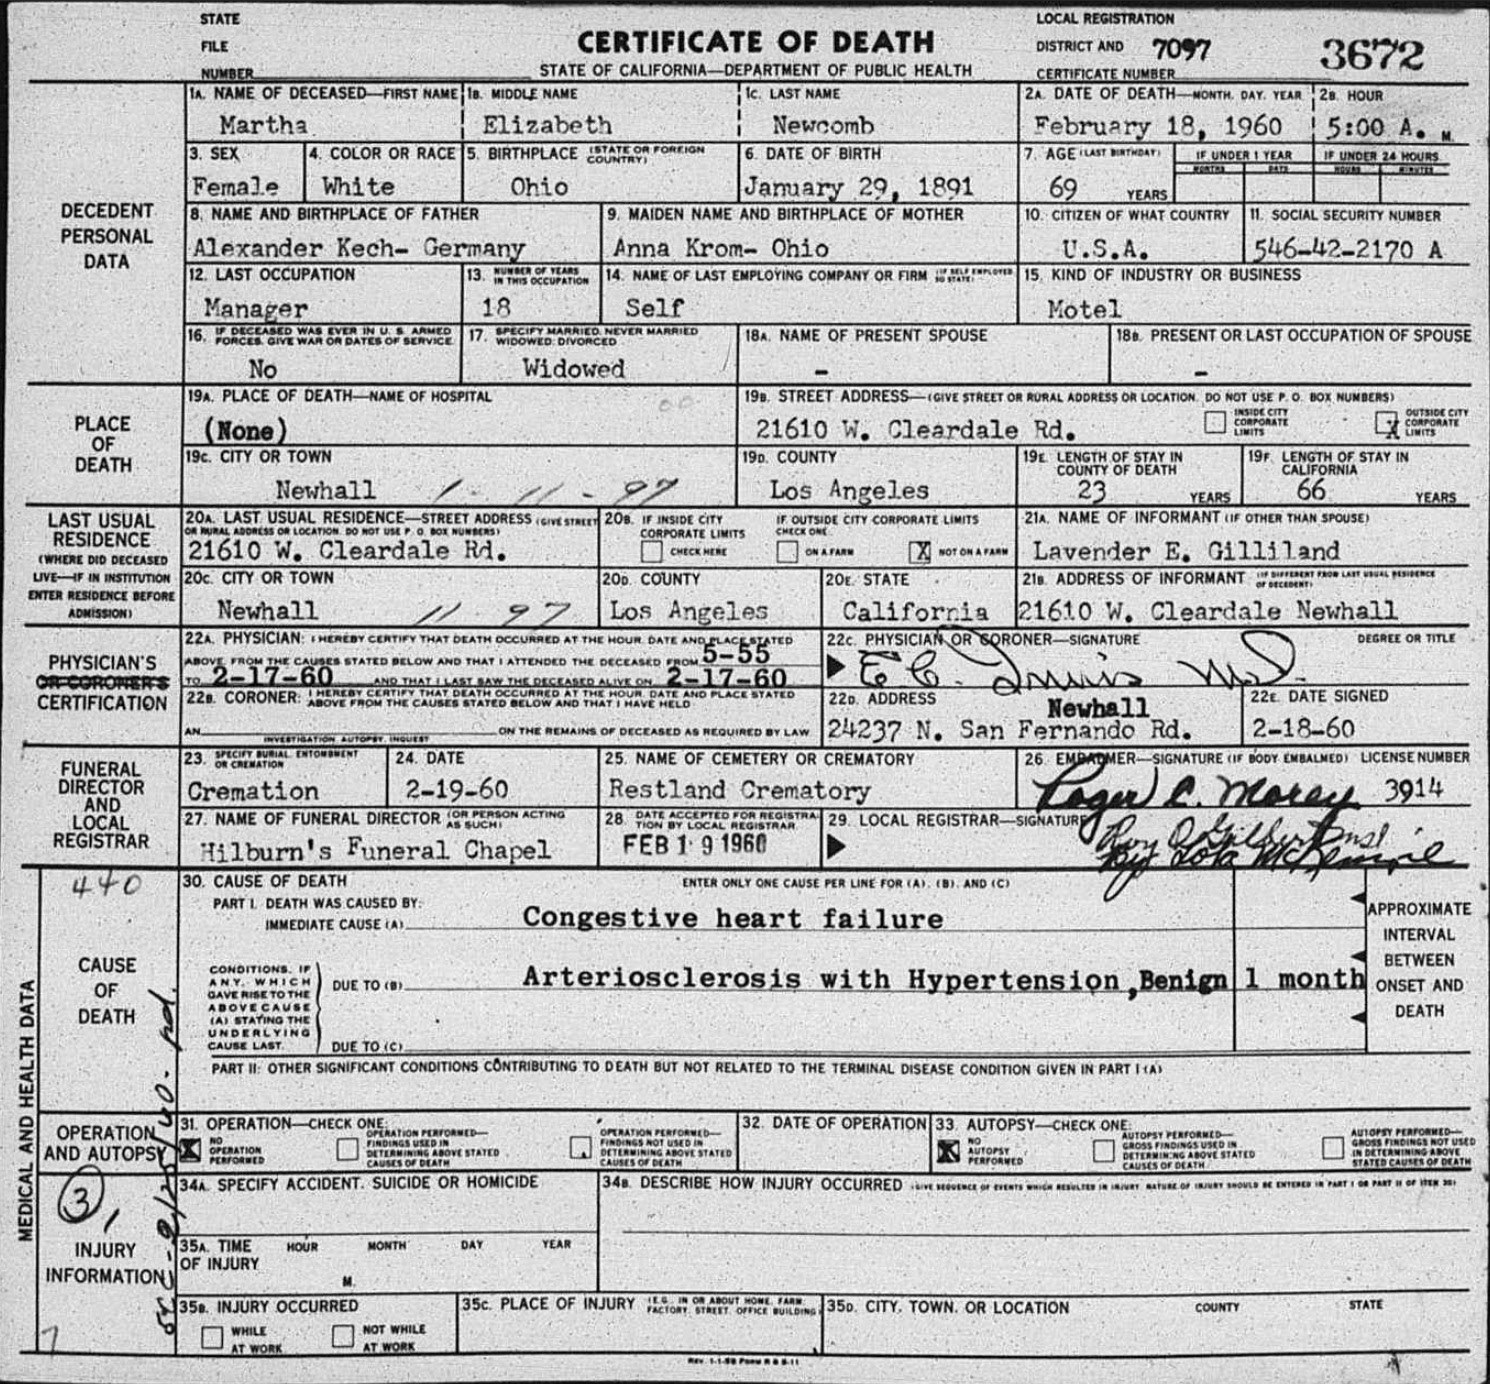 STATE
FILE
NUMBER
CERTIFICATE OF DEATH
STATE OF CALIFORNIA—DEPARTMENT OF PUBLIC HEALTH
LOCAL REGISTRATION
DISTRICT AND 7097 3672
CERTIFICATE NUMBER
DECEDENT
PERSONAL
DATA
1A. NAME OF DECEASED—FIRST NAME 1B. MIDDLE NAME 1C. LAST NAME 2A. DATE OF DEATH—MONTH. DAY. YEAR 2B. HOUR
Martha Elizabeth Newcomb February 18, 1960 5:00 A. M.
3. SEX 4. COLOR OR RACE 5. BIRTHPLACE (STATE OR FOREIGN COUNTRY) 6. DATE OF BIRTH 7. AGE (LAST BIRTHDAY) IF UNDER 1 YEAR IF UNDER 24 HOURS
MONTHS DAYS HOURS MINUTES
Female White Ohio January 29, 1891 69 YEARS
8. NAME AND BIRTHPLACE OF FATHER 9. MAIDEN NAME AND BIRTHPLACE OF MOTHER 10. CITIZEN OF WHAT COUNTRY 11. SOCIAL SECURITY NUMBER
Alexander Kech- Germany Anna Krom- Ohio U.S.A. 546-42-2170 A
12. LAST OCCUPATION 13. NUMBER OF YEARS IN THIS OCCUPATION 14. NAME OF LAST EMPLOYING COMPANY OR FIRM (IF SELF EMPLOYED SO STATE) 15. KIND OF INDUSTRY OR BUSINESS
Manager 18 Self Motel
16. IF DECEASED WAS EVER IN U. S. ARMED FORCES. GIVE WAR OR DATES OF SERVICE 17. SPECIFY MARRIED. NEVER MARRIED WIDOWED. DIVORCED 18A. NAME OF PRESENT SPOUSE 18B. PRESENT OR LAST OCCUPATION OF SPOUSE
No Widowed - -
PLACE
OF
DEATH
19A. PLACE OF DEATH—NAME OF HOSPITAL 19B. STREET ADDRESS—(GIVE STREET OR RURAL ADDRESS OR LOCATION. DO NOT USE P. O. BOX NUMBERS)
(None) 21610 W. Cleardale Rd. INSIDE CITY CORPORATE LIMITS X OUTSIDE CITY CORPORATE LIMITS
19C. CITY OR TOWN 19D. COUNTY 19E. LENGTH OF STAY IN COUNTY OF DEATH 19F. LENGTH OF STAY IN CALIFORNIA
Newhall 1 - 11 - 97 Los Angeles 23 YEARS 66 YEARS
LAST USUAL
RESIDENCE
(WHERE DID DECEASED
LIVE—IF IN INSTITUTION
ENTER RESIDENCE BEFORE
ADMISSION)
20A. LAST USUAL RESIDENCE—STREET ADDRESS (GIVE STREET OR RURAL ADDRESS OR LOCATION. DO NOT USE P. O. BOX NUMBERS) 20B. IF INSIDE CITY CORPORATE LIMITS IF OUTSIDE CITY CORPORATE LIMITS CHECK ONE 21A. NAME OF INFORMANT (IF OTHER THAN SPOUSE)
21610 W. Cleardale Rd. CHECK HERE ON A FARM X NOT ON A FARM Lavender E. Gilliland
20C. CITY OR TOWN 20D. COUNTY 20E. STATE 21B. ADDRESS OF INFORMANT (IF DIFFERENT FROM LAST USUAL RESIDENCE OF DECEDENT)
Newhall 11 97 Los Angeles California 21610 W. Cleardale Newhall
PHYSICIAN'S
OR CORONER'S
CERTIFICATION
22A. PHYSICIAN: I HEREBY CERTIFY THAT DEATH OCCURRED AT THE HOUR. DATE AND PLACE STATED
ABOVE. FROM THE CAUSES STATED BELOW AND THAT I ATTENDED THE DECEASED FROM 5-55
TO 2-17-60 AND THAT I LAST SAW THE DECEASED ALIVE ON 2-17-60
22C. PHYSICIAN OR CORONER—SIGNATURE DEGREE OR TITLE
E C. M.D.
22B. CORONER: I HEREBY CERTIFY THAT DEATH OCCURRED AT THE HOUR. DATE AND PLACE STATED
ABOVE FROM THE CAUSES STATED BELOW AND THAT I HAVE HELD
AN ON THE REMAINS OF DECEASED AS REQUIRED BY LAW
INVESTIGATION. AUTOPSY. INQUEST
22D. ADDRESS 22E. DATE SIGNED
Newhall
24237 N. San Fernando Rd. 2-18-60
FUNERAL
DIRECTOR
AND
LOCAL
REGISTRAR
23. SPECIFY BURIAL. ENTOMBMENT OR CREMATION 24. DATE 25. NAME OF CEMETERY OR CREMATORY 26. EMBALMER—SIGNATURE (IF BODY EMBALMED) LICENSE NUMBER
Cremation 2-19-60 Restland Crematory Roger C. Morey 3914
27. NAME OF FUNERAL DIRECTOR (OR PERSON ACTING AS SUCH) 28. DATE ACCEPTED FOR REGISTRATION BY LOCAL REGISTRAR 29. LOCAL REGISTRAR—SIGNATURE
Hilburn's Funeral Chapel FEB 19 1960 Roy O. Gilbert
By Lola
440
CAUSE
OF
DEATH
30. CAUSE OF DEATH ENTER ONLY ONE CAUSE PER LINE FOR (A). (B). AND (C)
PART I. DEATH WAS CAUSED BY:
IMMEDIATE CAUSE (A) Congestive heart failure
CONDITIONS. IF
ANY. WHICH
GAVE RISE TO THE
ABOVE CAUSE
(A) STATING THE
UNDERLYING
CAUSE LAST.
DUE TO (B) Arteriosclerosis with Hypertension,Benign 1 month
DUE TO (C)
APPROXIMATE
INTERVAL
BETWEEN
ONSET AND
DEATH
PART II: OTHER SIGNIFICANT CONDITIONS CONTRIBUTING TO DEATH BUT NOT RELATED TO THE TERMINAL DISEASE CONDITION GIVEN IN PART I (A)
MEDICAL AND HEALTH DATA
OPERATION
AND AUTOPSY
31. OPERATION—CHECK ONE: 32. DATE OF OPERATION 33. AUTOPSY—CHECK ONE:
X NO OPERATION PERFORMED
OPERATION PERFORMED—FINDINGS USED IN DETERMINING ABOVE STATED CAUSES OF DEATH
OPERATION PERFORMED—FINDINGS NOT USED IN DETERMINING ABOVE STATED CAUSES OF DEATH
X NO AUTOPSY PERFORMED
AUTOPSY PERFORMED—GROSS FINDINGS USED IN DETERMINING ABOVE STATED CAUSES OF DEATH
AUTOPSY PERFORMED—GROSS FINDINGS NOT USED IN DETERMINING ABOVE STATED CAUSES OF DEATH
3
INJURY
INFORMATION
34A. SPECIFY ACCIDENT. SUICIDE OR HOMICIDE 34B. DESCRIBE HOW INJURY OCCURRED (GIVE SEQUENCE OF EVENTS WHICH RESULTED IN INJURY. NATURE OF INJURY SHOULD BE ENTERED IN PART I OR PART II OF ITEM 30)
35A. TIME OF INJURY HOUR MONTH DAY YEAR
M.
35B. INJURY OCCURRED 35C. PLACE OF INJURY (E.G. IN OR ABOUT HOME. FARM. FACTORY. STREET. OFFICE BUILDING) 35D. CITY. TOWN. OR LOCATION COUNTY STATE
WHILE AT WORK NOT WHILE AT WORK
7